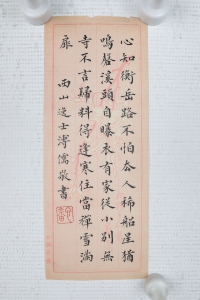 心知衡岳路不怕去人稀船裏猶
鳴磬溪頭自曝衣有家從小別無
寺不言歸料得逢寒住當禪雪滿
扉 西山逸士溥儒敬書